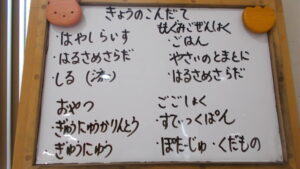 きょうのこんだて
・はやしらいす
・はるさめさらだ
・しる
おやつ
・ぎゅうにゅうかりんとう
ぎゅうにゅう
・ごはん
やさいのとまとに
・はるさめさらだ
ごごしょく
・すてぃっくぱん
・ぽたーじゅ・くだもの